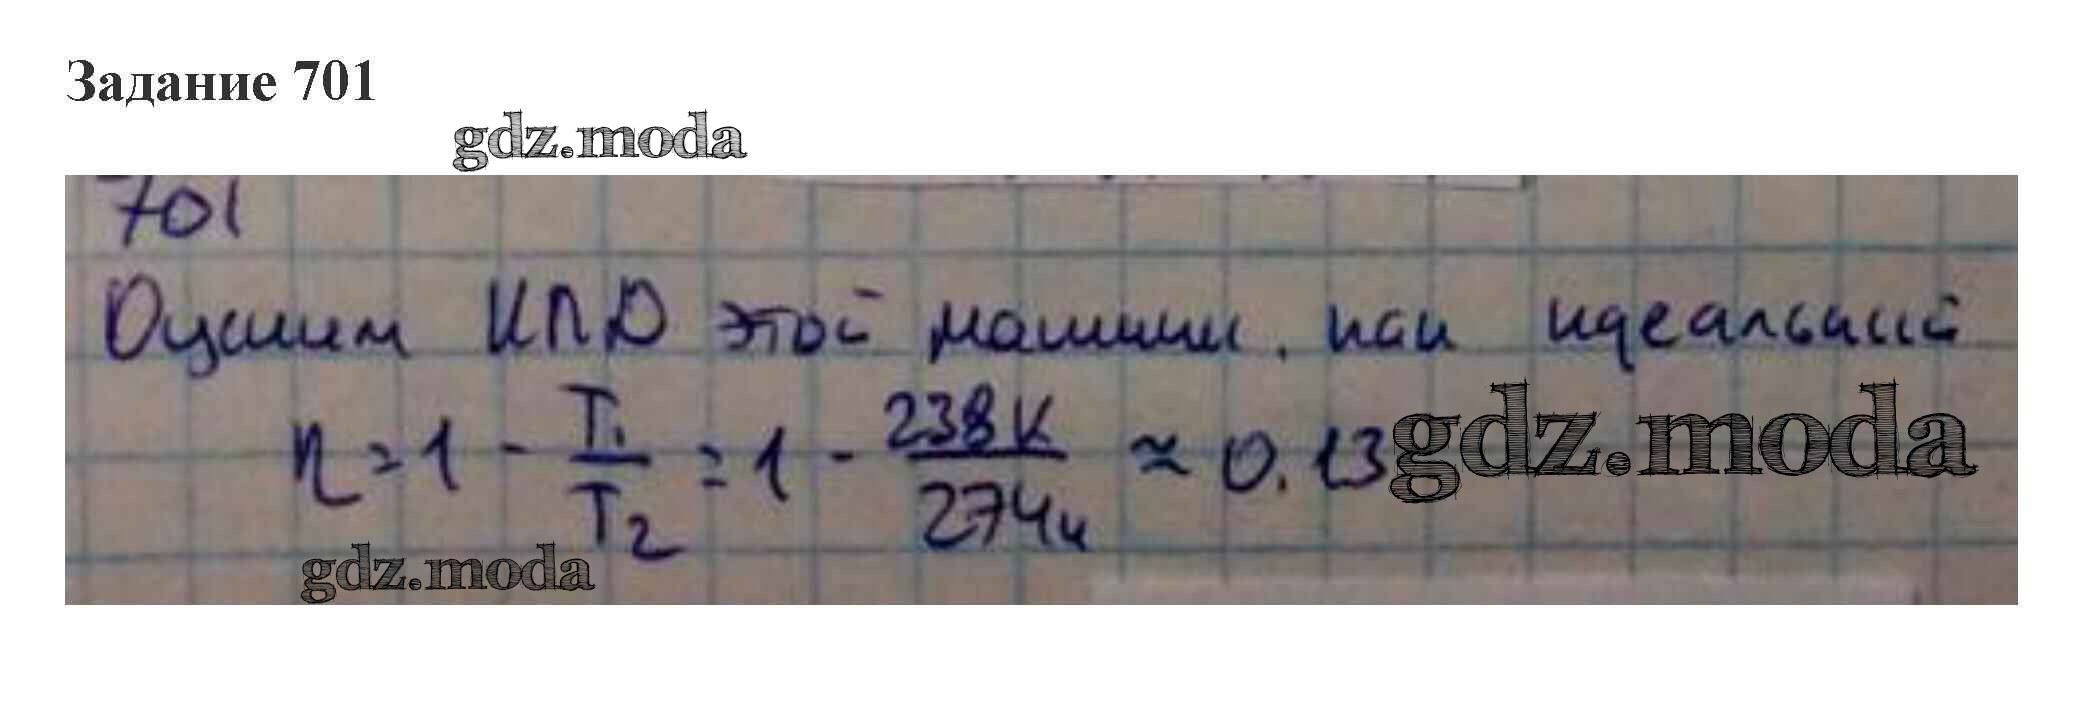 Задание 701
gdz.moda
701
Оценим КПД этой машины, как идеальный
η = 1 - T₁/T₂ = 1 - 238К/274К ≈ 0.13
gdz.moda
gdz.moda